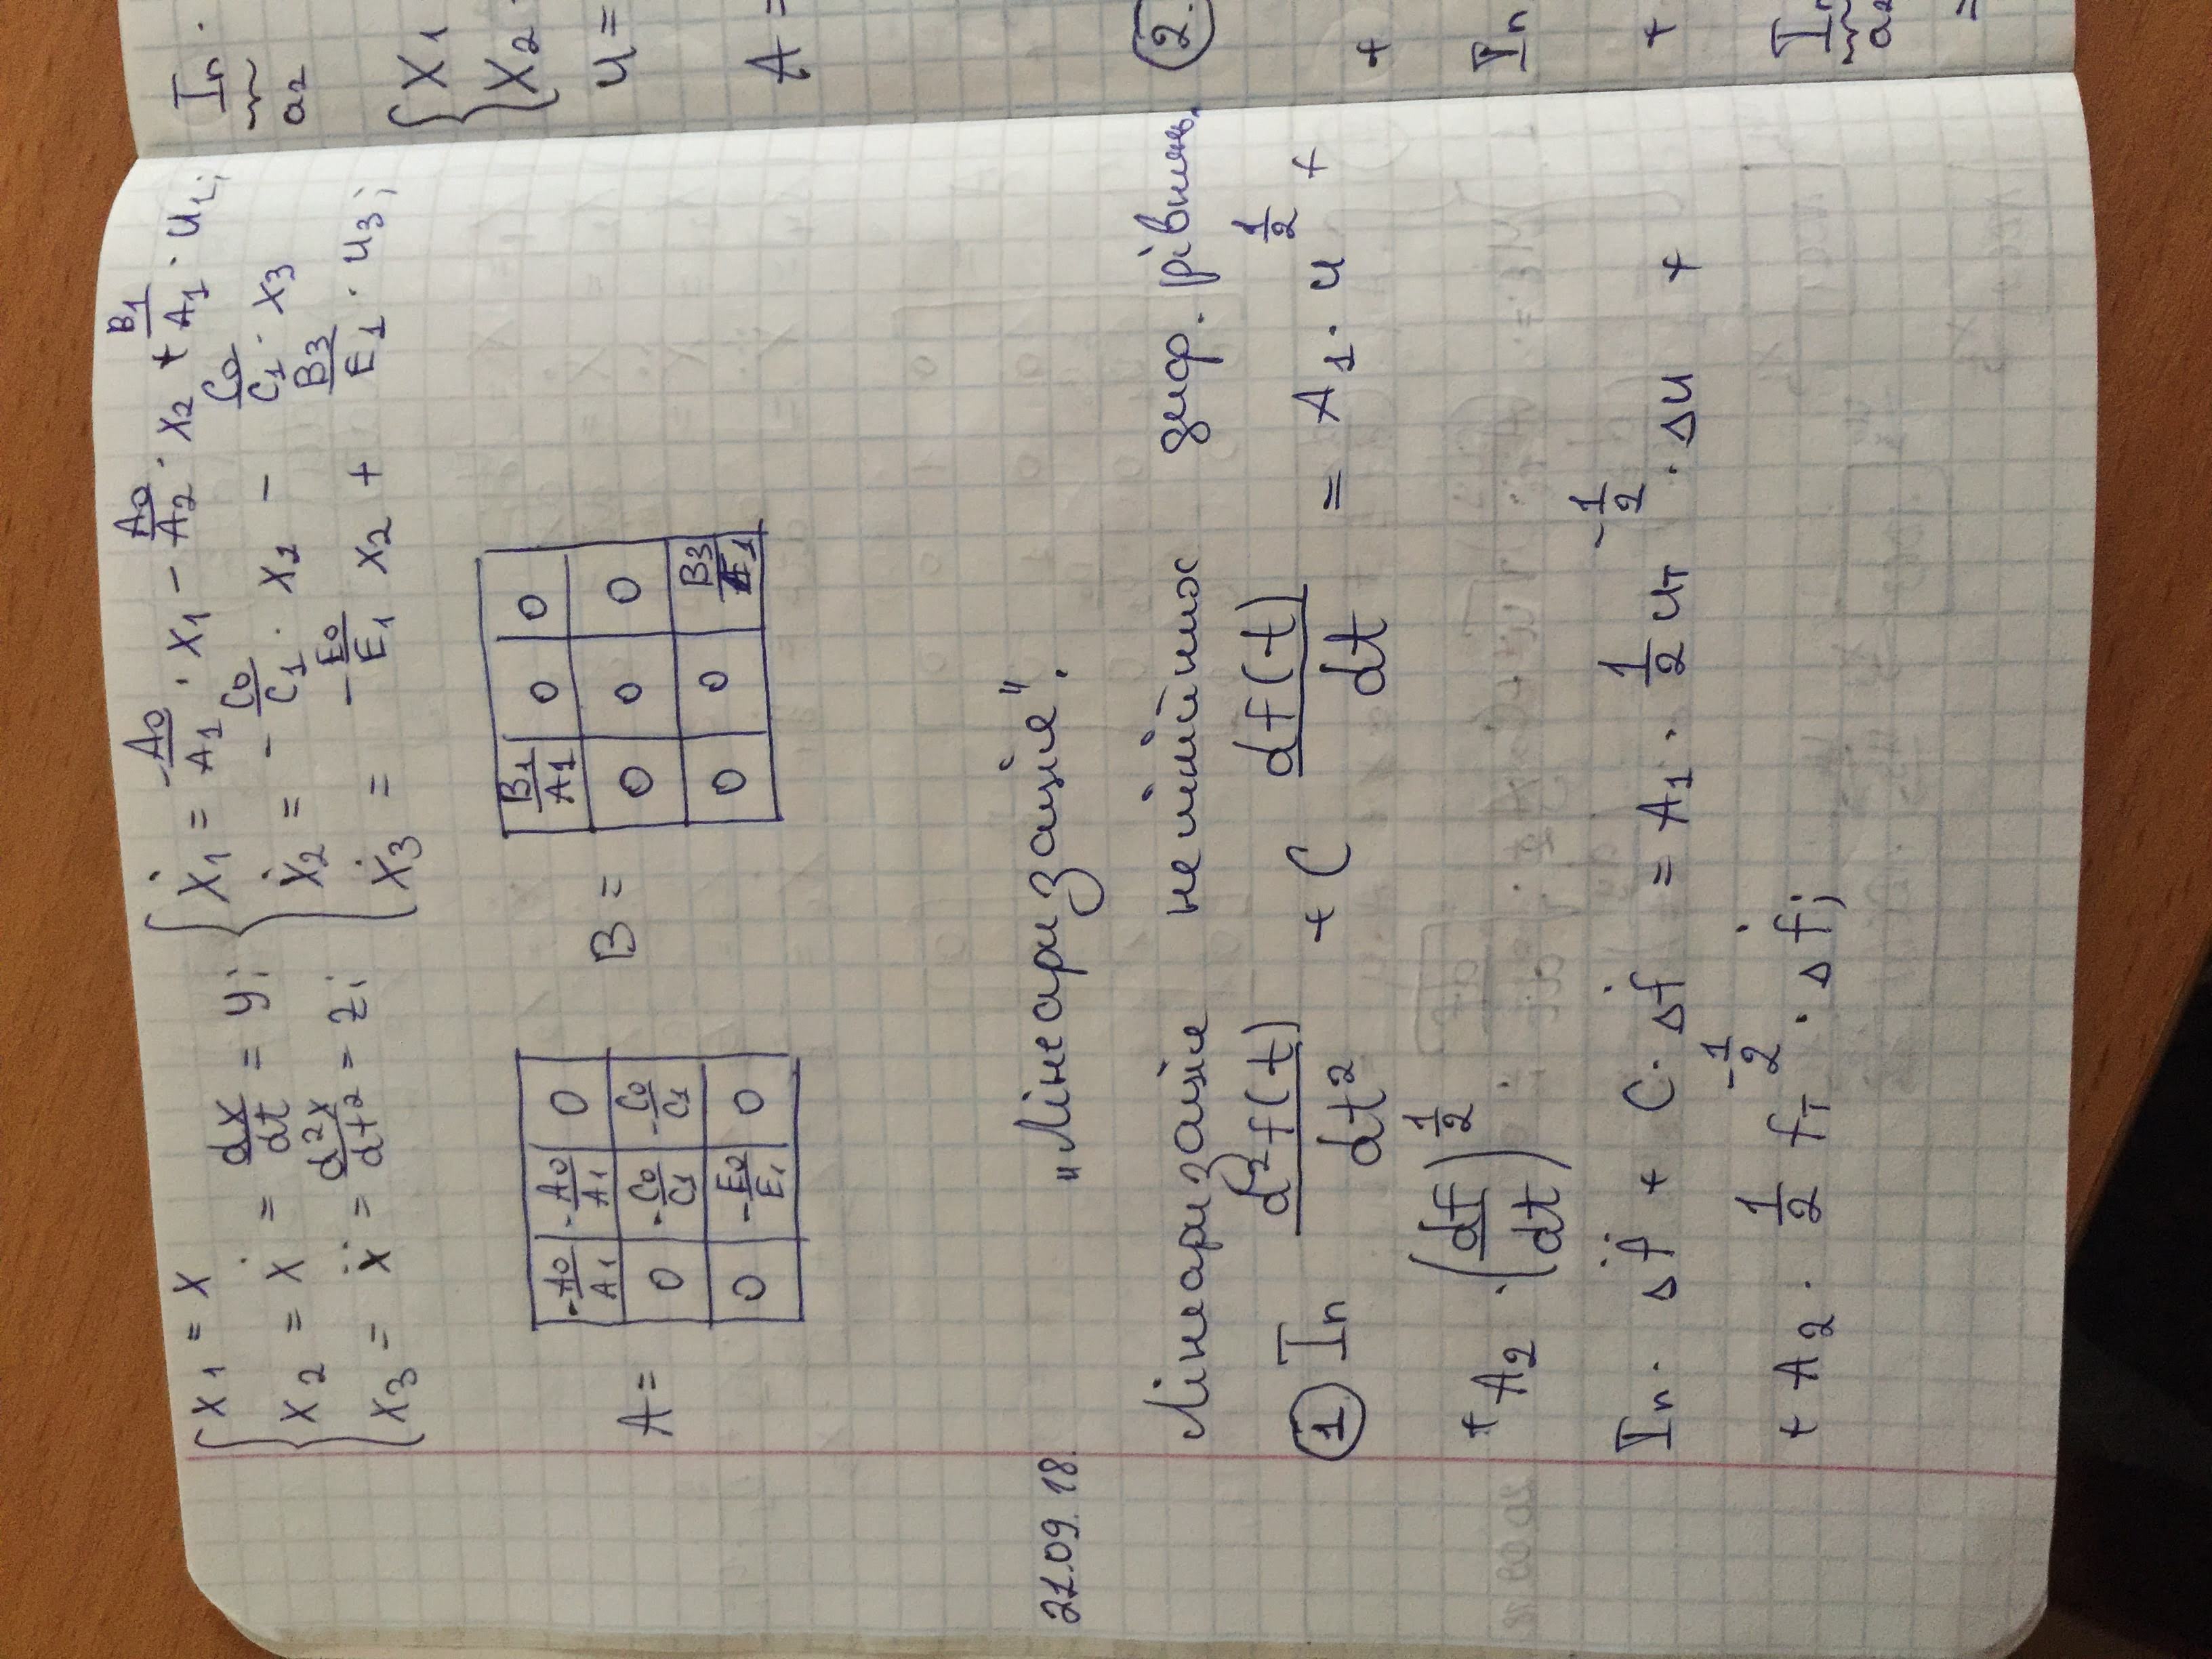 x1 = x
x2 = ẋ = dx/dt = y;
x3 = ẍ = d²x/dt² = z;
ẋ1 = -A0/A1 · x1 - A0/A2 · x2 + B1/A1 · u1;
ẋ2 = - C0/C1 · x2 - C0/C1 · x3
ẋ3 = -E0/E1 x2 + B3/E1 · u3;
A =
-A0/A1 -A0/A1 0
0 -C0/C1 -C0/C1
0 -E0/E1 0
B =
B1/A1 0 0
0 0 0
0 0 B3/E1
21.09.18.
„Лінеаризація".
Лінеаризація нелінійних диф. рівнянь.
1 In d²f(t)/dt² + C df(t)/dt = A1 · u^1/2 +
+ A2 · (df/dt)^1/2 ·
In · Δf̈ + C · Δḟ = A1 · 1/2 uт^-1/2 · Δu +
+ A2 · 1/2 fт^-1/2 · Δḟ;
In ·
a2
x1
x2
u =
A =
2.
+
In
+
In
a2
=